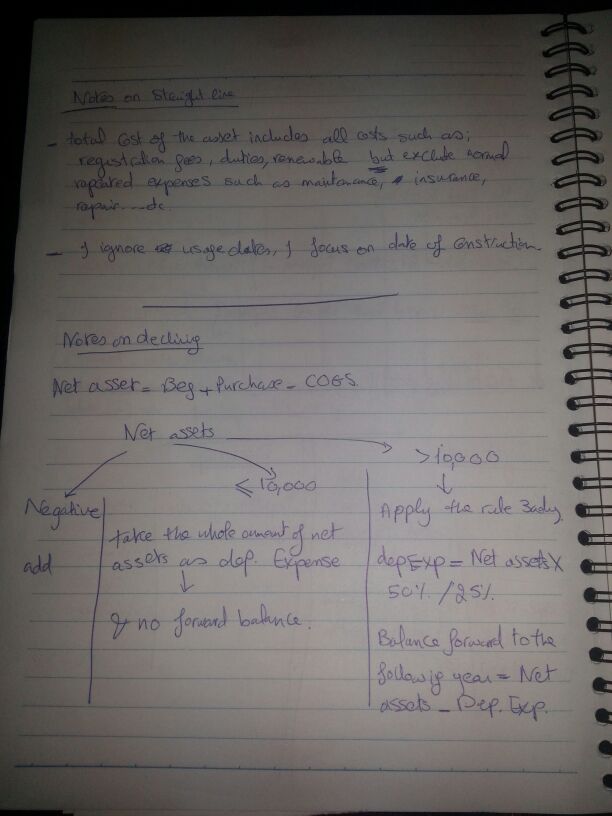 Notes on Straight line
- total Cost of the asset includes all costs such as;
registration fees, duties, renewable but exclude normal
repeated expenses such as maintenance, insurance,
repair....etc
- I ignore usage dates, I focus on date of Construction
Notes on declinig
Net asset = Beg + Purchase - COGS.
Net assets
> 10,000
≤ 10,000
Negative
add
take the whole amount of net
assets as dep. Expense
& no forward balance.
Apply the rule 3ady.
depExp = Net assets X
50% / 25%
Balance forward to the
followig year = Net
assets - Dep. Exp.